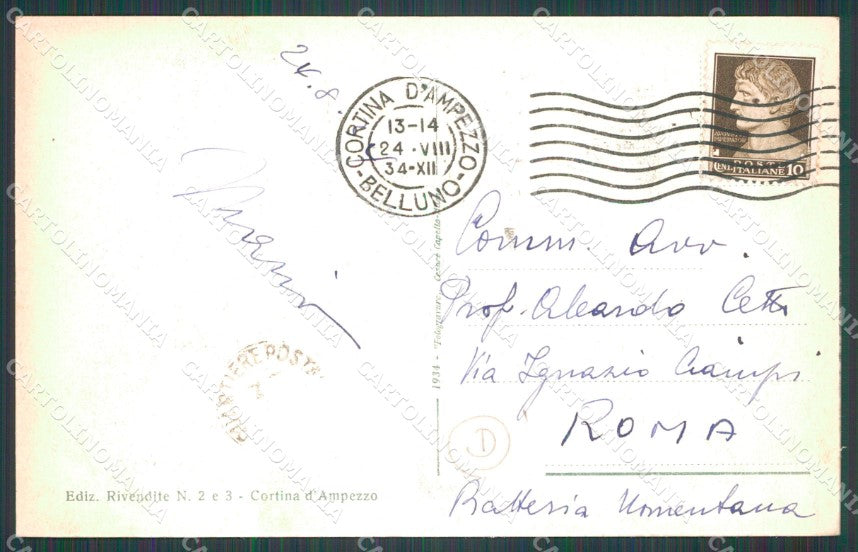 24.8.
CORTINA D'AMPEZZO
13-14
24·VIII
34-XII
-BELLUNO-
POSTE
CENT. ITALIANE 10
Comm Avv.
Prof. Aleardo Cetti
Via Ignazio Ciampi
ROMA
Batteria Nomentana
D
1934 -
PORTALETTERE POSTA
Ediz. Rivendite N. 2 e 3 - Cortina d'Ampezzo
CARTOLINOMANIA